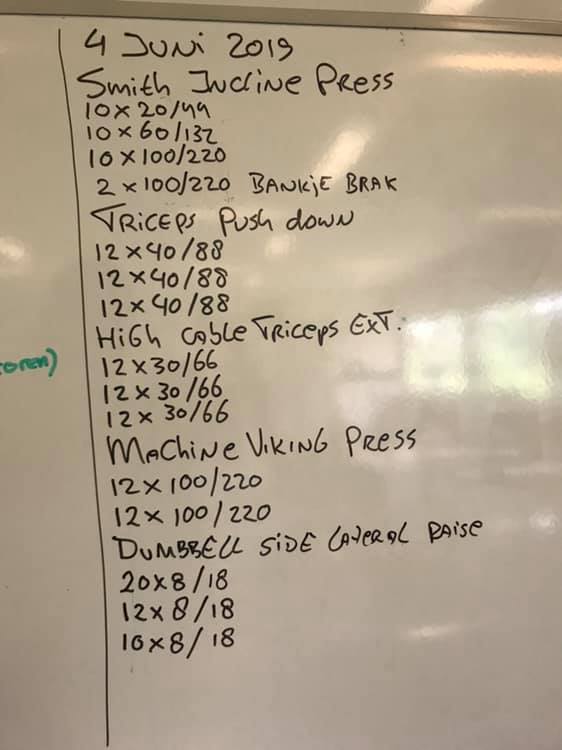 4 JUNI 2019
Smith Incline Press
10 x 20/44
10 x 60/132
10 x 100/220
2 x 100/220 BANKJE BRAK
TRICEPS Push down
12 x 40/88
12 x 40/88
12 x 40/88
HIGH CABLE TRICEPS EXT.
oren)
12 x 30/66
12 x 30/66
12 x 30/66
MACHINE VIKING PRESS
12 x 100/220
12 x 100/220
DUMBBELL SIDE LATERAL RAISE
20 x 8/18
12 x 8/18
10 x 8/18